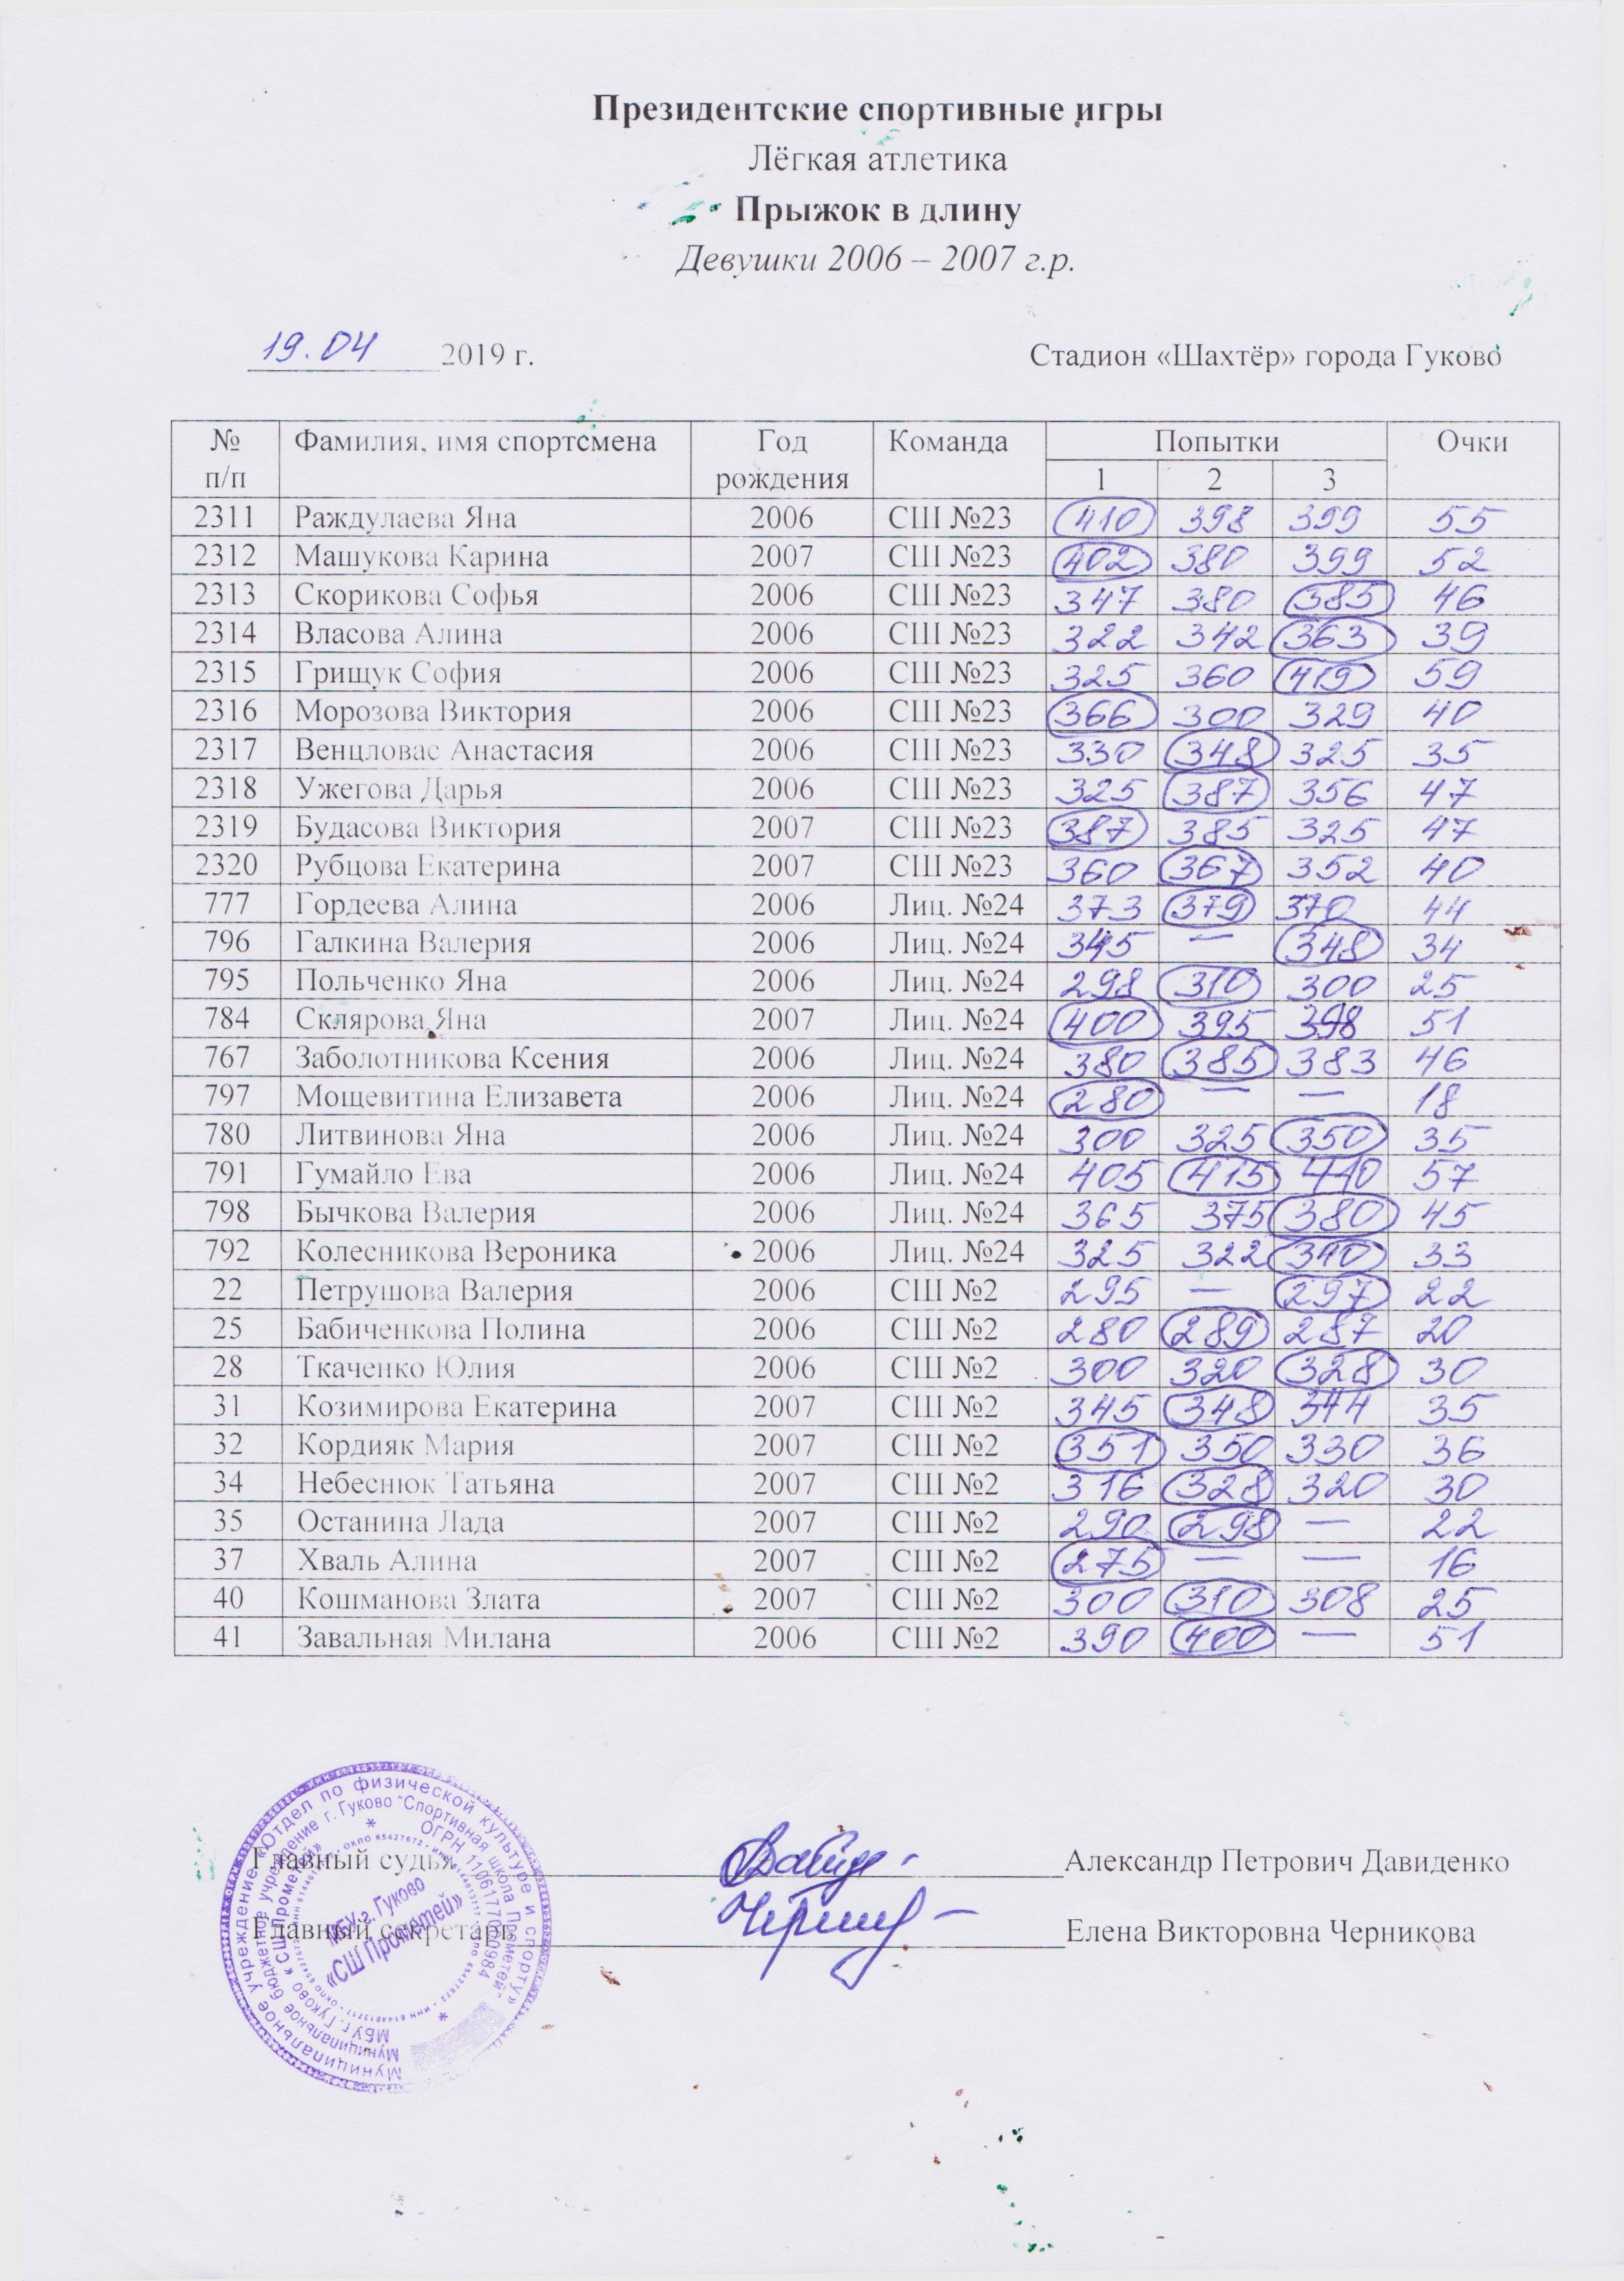 Президентские спортивные игры
Лёгкая атлетика
Прыжок в длину
Девушки 2006 – 2007 г.р.
19.04 2019 г. Стадион «Шахтёр» города Гуково
№ п/п Фамилия, имя спортсмена Год рождения Команда Попытки Очки
1 2 3
2311 Раждулаева Яна 2006 СШ №23 410 398 399 55
2312 Машукова Карина 2007 СШ №23 402 380 399 52
2313 Скорикова Софья 2006 СШ №23 347 380 385 46
2314 Власова Алина 2006 СШ №23 322 342 363 39
2315 Грищук София 2006 СШ №23 325 360 419 59
2316 Морозова Виктория 2006 СШ №23 366 300 329 40
2317 Венцловас Анастасия 2006 СШ №23 330 348 325 35
2318 Ужегова Дарья 2006 СШ №23 325 387 356 47
2319 Будасова Виктория 2007 СШ №23 387 385 325 47
2320 Рубцова Екатерина 2007 СШ №23 360 367 352 40
777 Гордеева Алина 2006 Лиц. №24 373 379 370 44
796 Галкина Валерия 2006 Лиц. №24 345 — 348 34
795 Польченко Яна 2006 Лиц. №24 298 310 300 25
784 Склярова Яна 2007 Лиц. №24 400 395 398 51
767 Заболотникова Ксения 2006 Лиц. №24 380 385 383 46
797 Мощевитина Елизавета 2006 Лиц. №24 280 — — 18
780 Литвинова Яна 2006 Лиц. №24 300 325 350 35
791 Гумайло Ева 2006 Лиц. №24 405 415 410 57
798 Бычкова Валерия 2006 Лиц. №24 365 375 380 45
792 Колесникова Вероника 2006 Лиц. №24 325 322 340 33
22 Петрушова Валерия 2006 СШ №2 295 — 297 22
25 Бабиченкова Полина 2006 СШ №2 280 289 287 20
28 Ткаченко Юлия 2006 СШ №2 300 320 328 30
31 Козимирова Екатерина 2007 СШ №2 345 348 344 35
32 Кордияк Мария 2007 СШ №2 351 350 330 36
34 Небеснюк Татьяна 2007 СШ №2 316 328 320 30
35 Останина Лада 2007 СШ №2 290 298 — 22
37 Хваль Алина 2007 СШ №2 275 — — 16
40 Кошманова Злата 2007 СШ №2 300 310 308 25
41 Завальная Милана 2006 СШ №2 390 400 — 51
Главный судья Александр Петрович Давиденко
Главный секретарь Елена Викторовна Черникова
Муниципальное учреждение «Отдел по физической культуре и спорту»
Муниципальное бюджетное учреждение г. Гуково "Спортивная школа Прометей"
МБУ г. Гуково «СШ Прометей»
МБУ г. Гуково
«СШ Прометей»